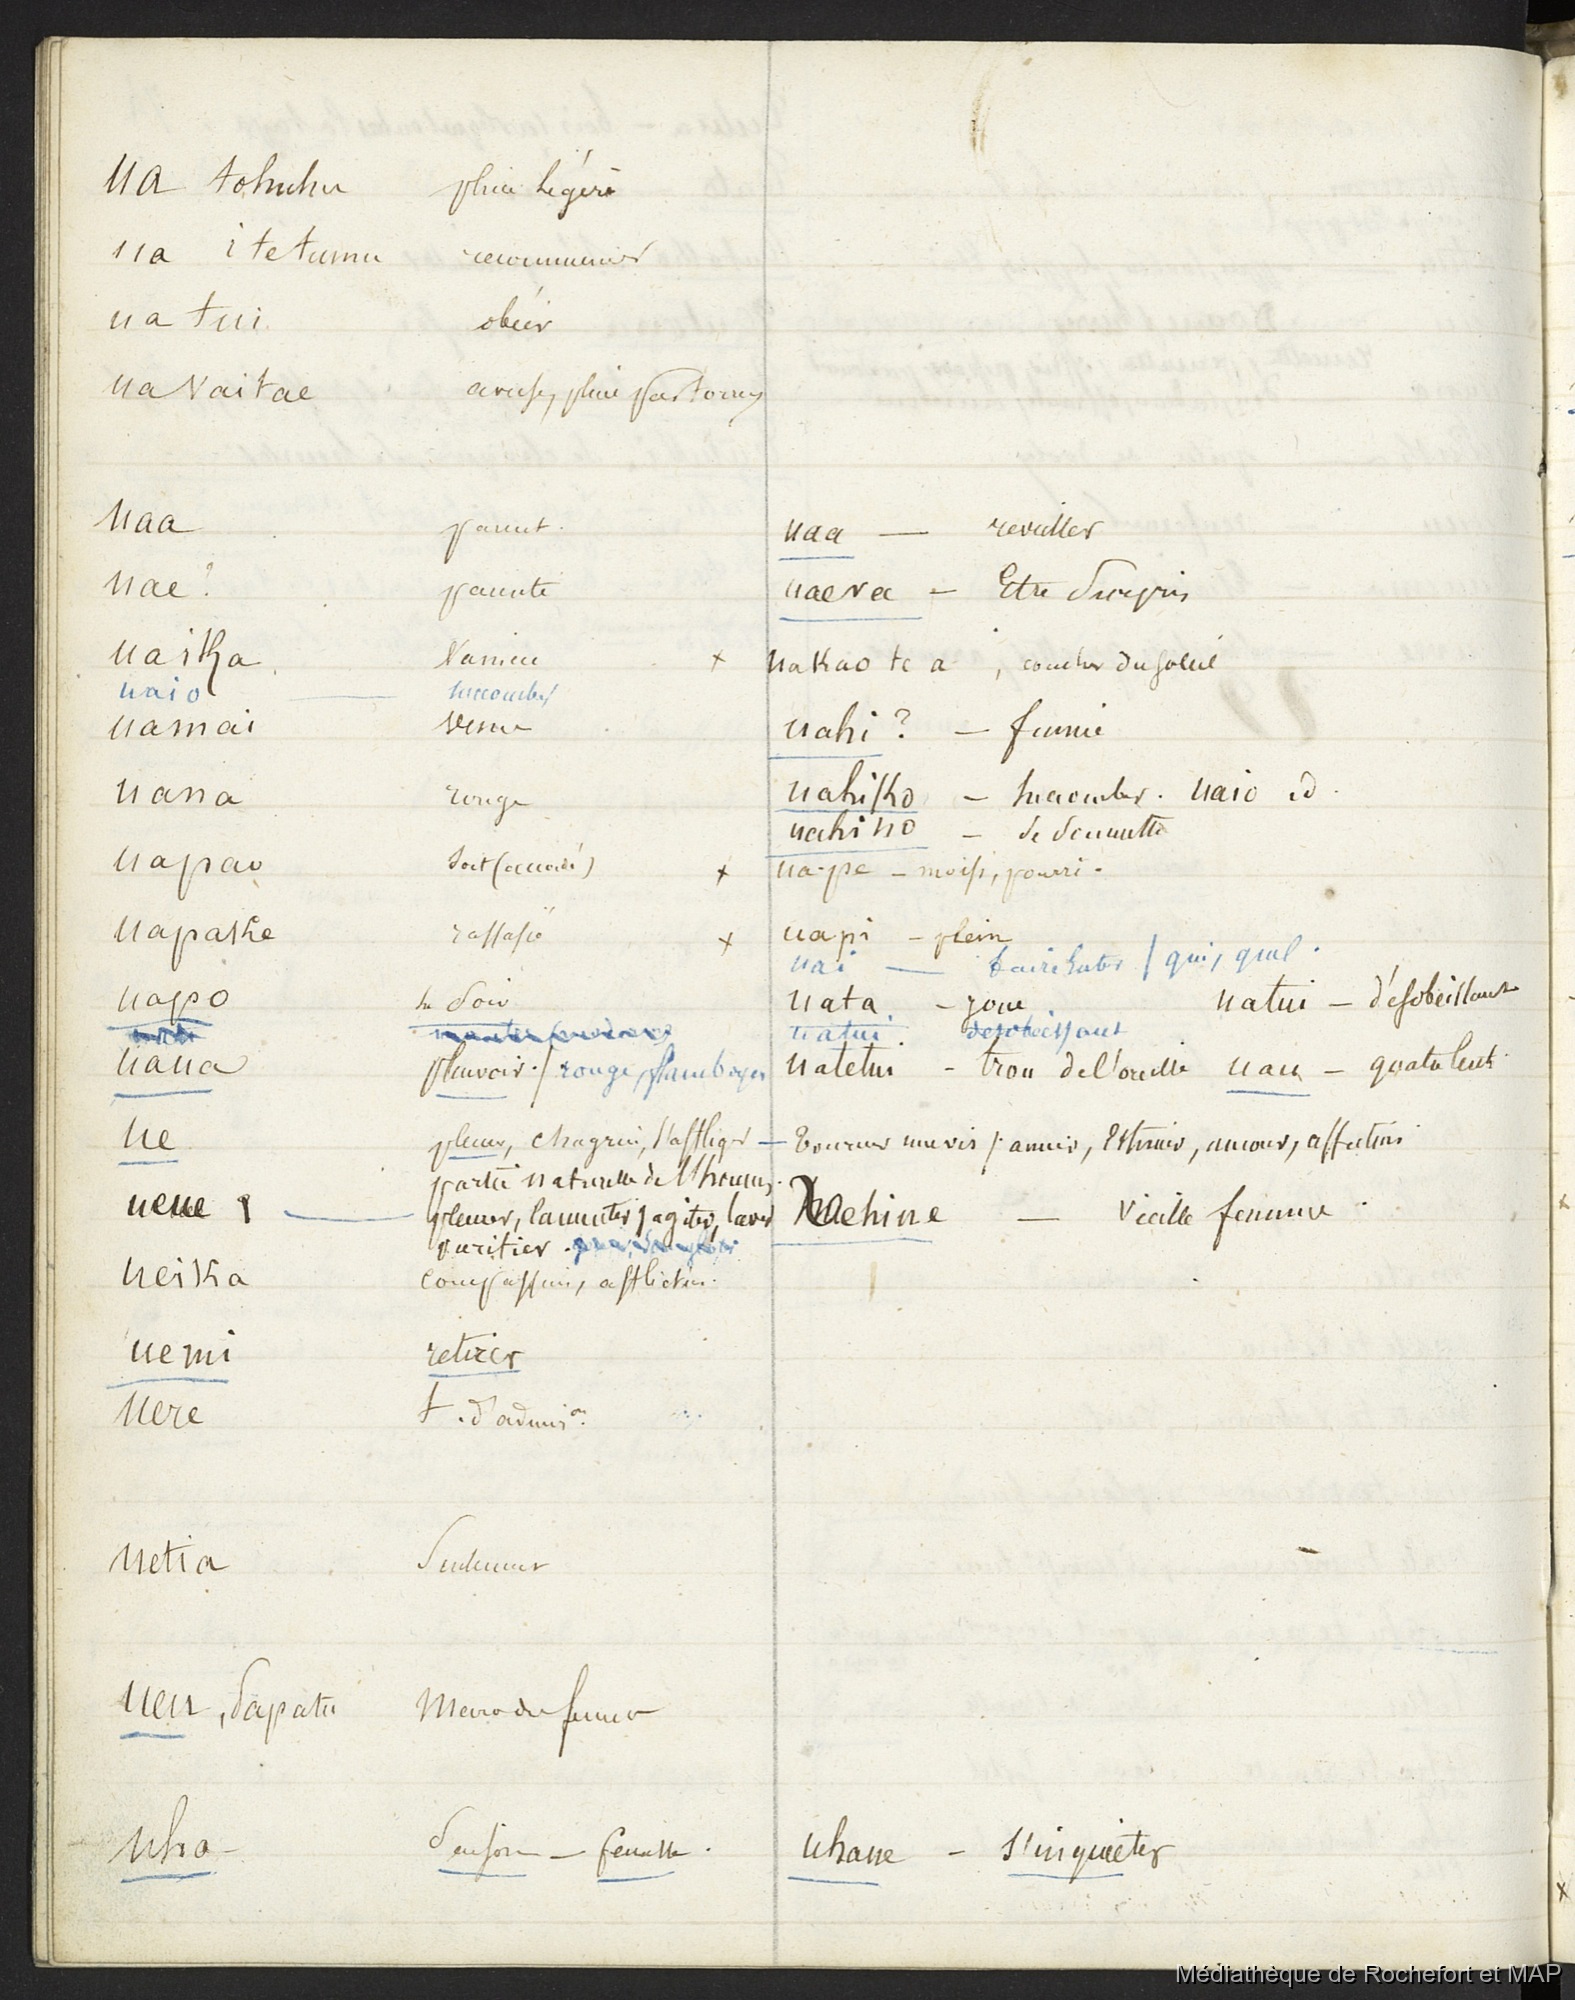 ua tohuhu pluie légère
ua i te tumu recommencer
ua tui obéir
ua vaitae averse, pluie par torrens
uaa parent.
uaa — reveiller
uae? parente
uaeva — Etre Surpris
uaika Vanieu
x uakao te a , coucher du soleil
uaio — succomber
uamai venu
uahi? — fumée
uana rouge
uahiko — succomber. uaio id.
uahino — se soumettre
uapao soit (accordé)
x ua-pe — moisi, pourri.
uapake rassasié
x uapi — plein
uai — / qui, quel.
uapo le Soir
uata — roue uatui — désobéissant
uatui désobéissant
uaua pleuvoir. / rouge, flamboyer
uatetui — trou de l'oreille uau — quatuleut.
ue pleurer, chagrin, s'affliger — tourner mu vis / aimer, Estimer, amour, affection
partie naturelle de l'homme.
ueue — pleurer, lamenter / agiter, laver
uaehine — Vieille femme.
purifier.
ueika compassion, affliction.
uemi retirer
uere t. d'admi.on
uetia Seulement
ueu, Sapatu
uho — femelle.
uhane — s'inquiéter
Médiathèque de Rochefort et MAP